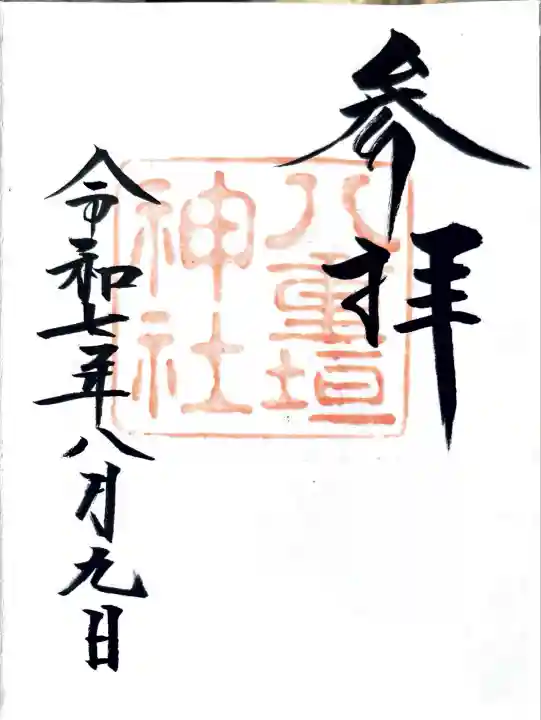 参拝
八重垣
神社
令和七年八月九日